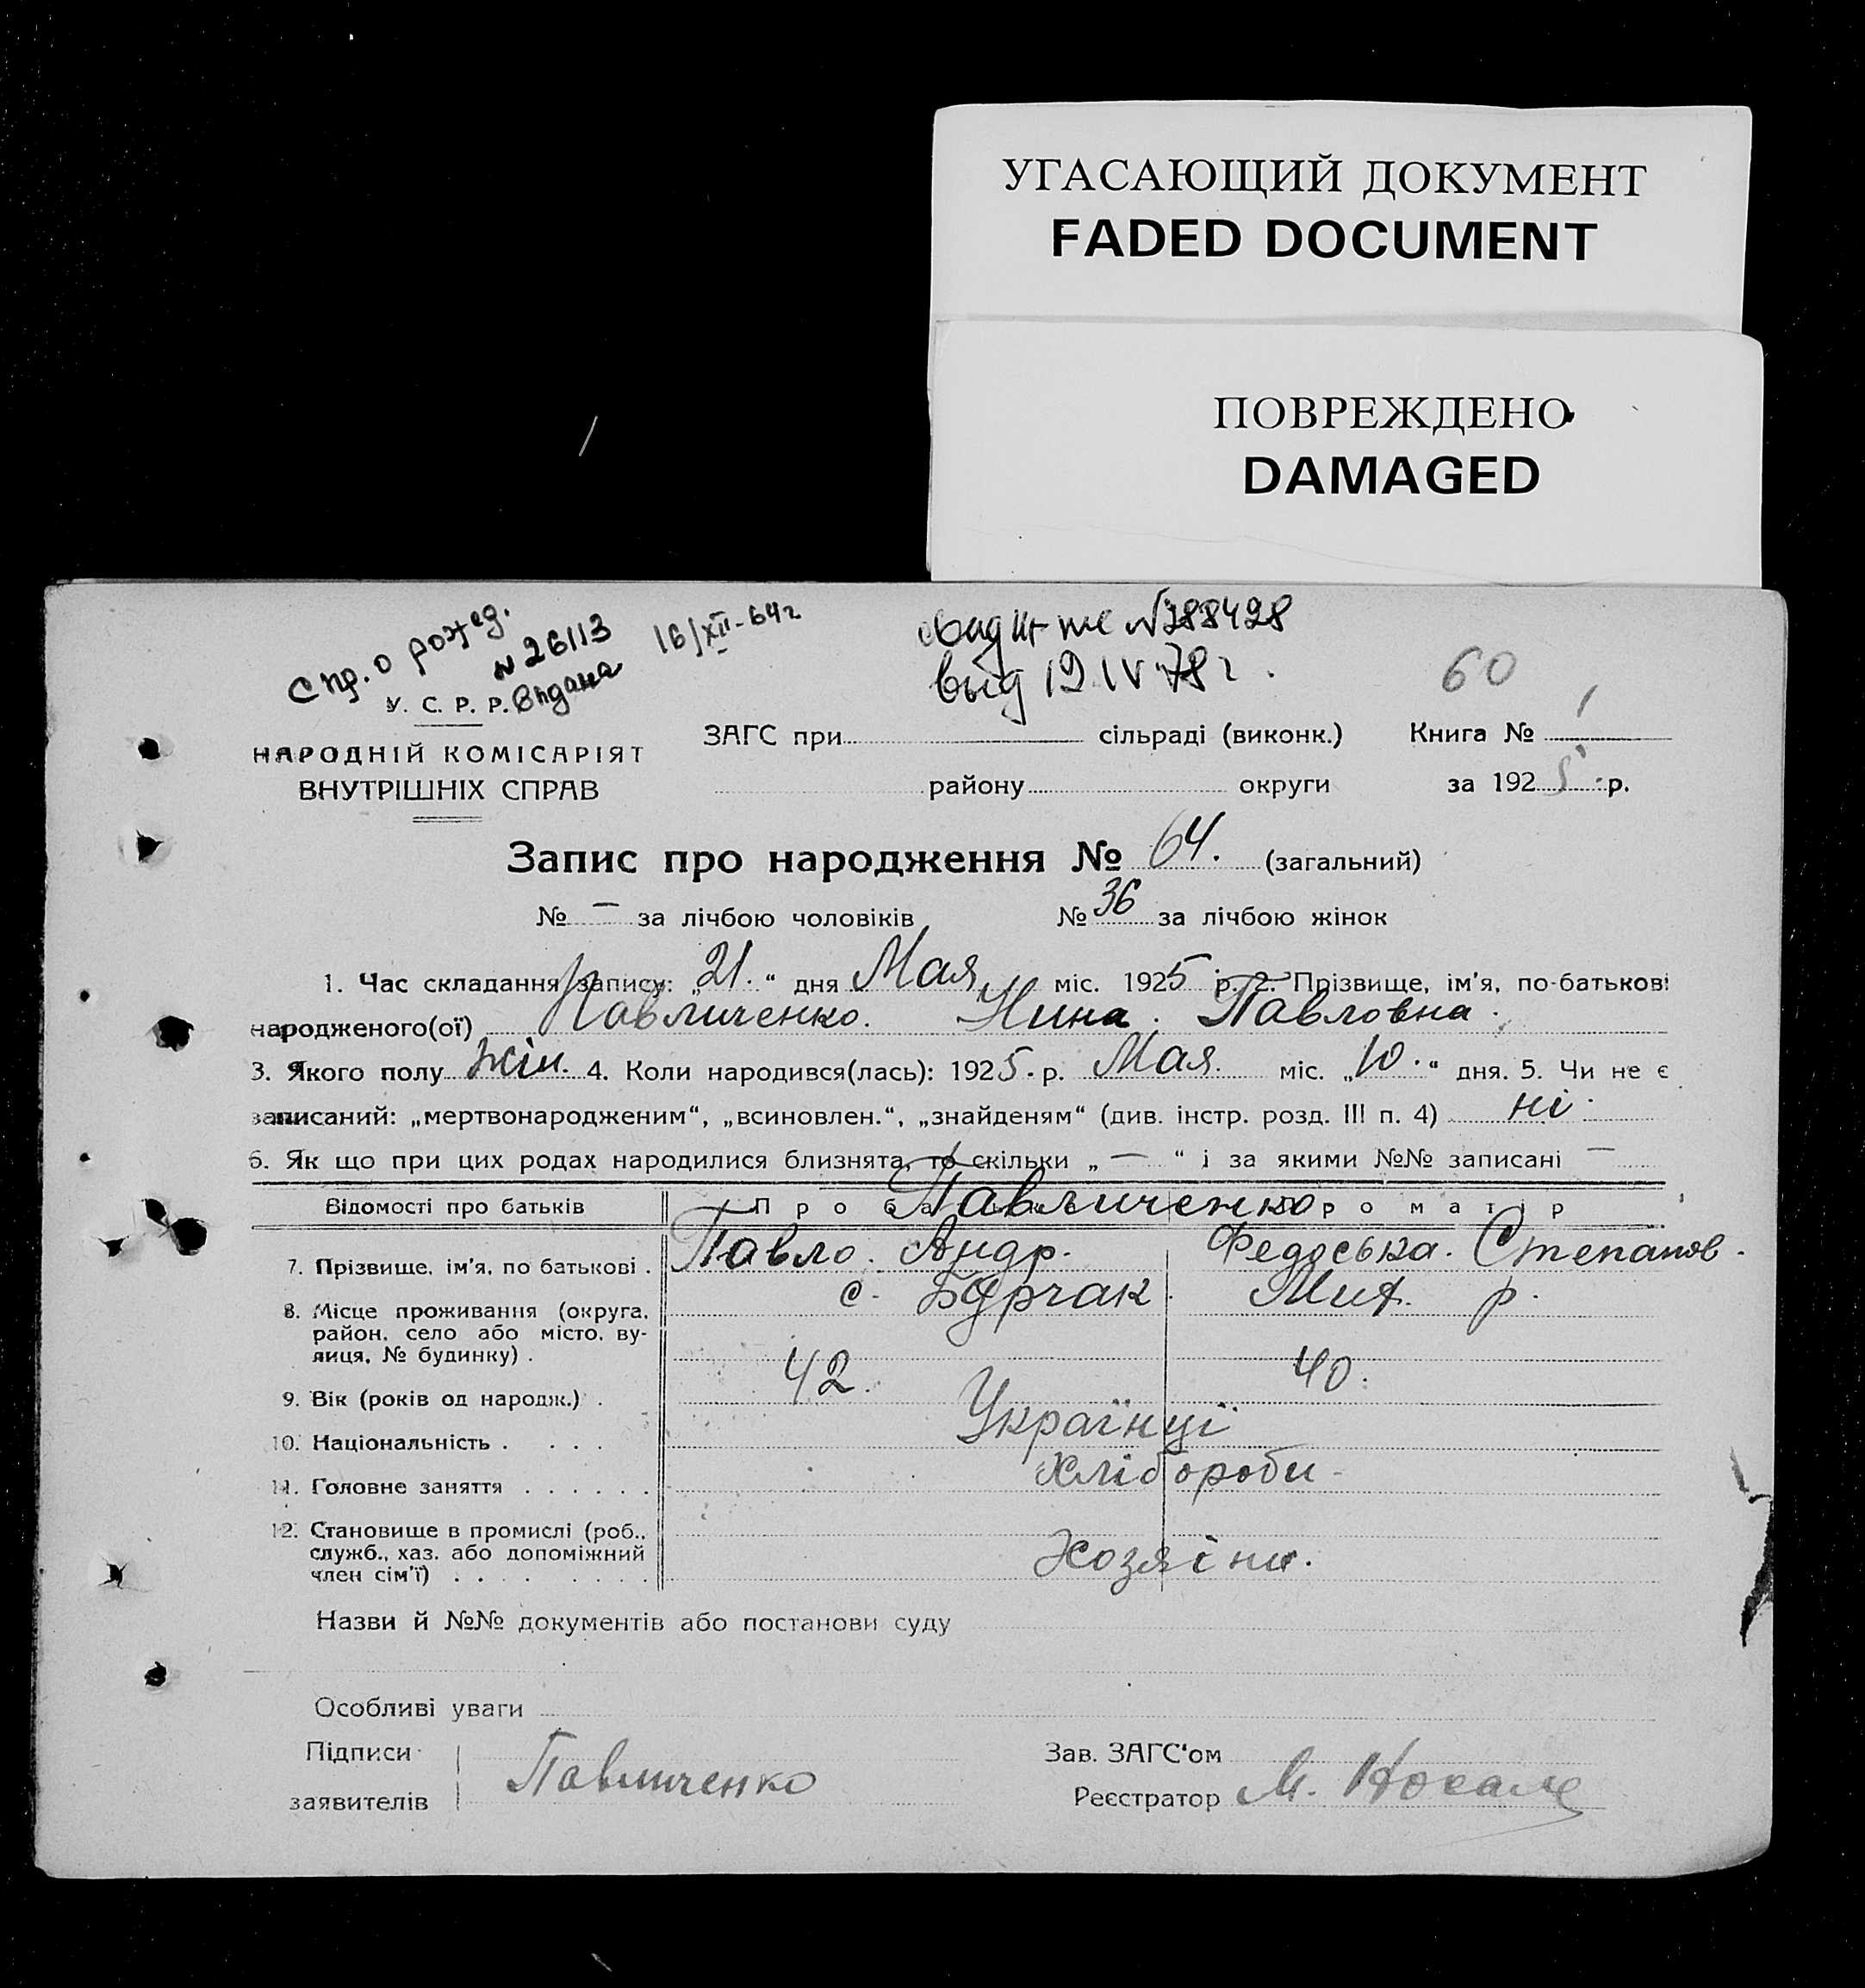 УГАСАЮЩИЙ ДОКУМЕНТ
FADED DOCUMENT
ПОВРЕЖДЕНО
DAMAGED
Спр. о рожед.
N 26113 16/XII-64г
выдана
N 288428
выд 19 IV 78 г.
60
У. С. Р. Р.
НАРОДНІЙ КОМІСАРІЯТ
ВНУТРІШНІХ СПРАВ
ЗАГС при сільраді (виконк.) Книга № 1
району округи за 1925 р.
Запис про народження № 64. (загальний)
№ — за лічбою чоловіків № 36 за лічбою жінок
1. Час складання запису: „21.“ дня Мая міс. 1925 р. 2. Прізвище, ім'я, по-батькові
народженого(ої) Павличенко. Нина. Павловна.
3. Якого полу жін. 4. Коли народився(лась): 1925. р. Мая. міс. „10.“ дня. 5. Чи не є
записаний: „мертвонародженим“, „всиновлен.“, „знайденям“ (див. інстр. розд. III п. 4) ні.
6. Як що при цих родах народилися близнята, то скільки „—“ і за якими №№ записані —
Відомості про батьків Про батька Про матір
Павличенко
7. Прізвище, ім'я, по батькові . Павло. Андр. Федоська. Степанов.
8. Місце проживання (округа, с. Бурчак. Мих. р.
район, село або місто, ву-
лиця, № будинку) .
9. Вік (років од народж.) . 42. 40.
10. Національність . . . . Українці
11. Головне заняття . . . . . . Хлібороби
12. Становище в промислі (роб.,
служб., хаз. або допоміжний Хозяіни.
член сім'ї) . . . . . . . .
Назви й №№ документів або постанови суду
Особливі уваги
Підписи Зав. ЗАГС'ом
Павличенко
заявителів Реєстратор М.